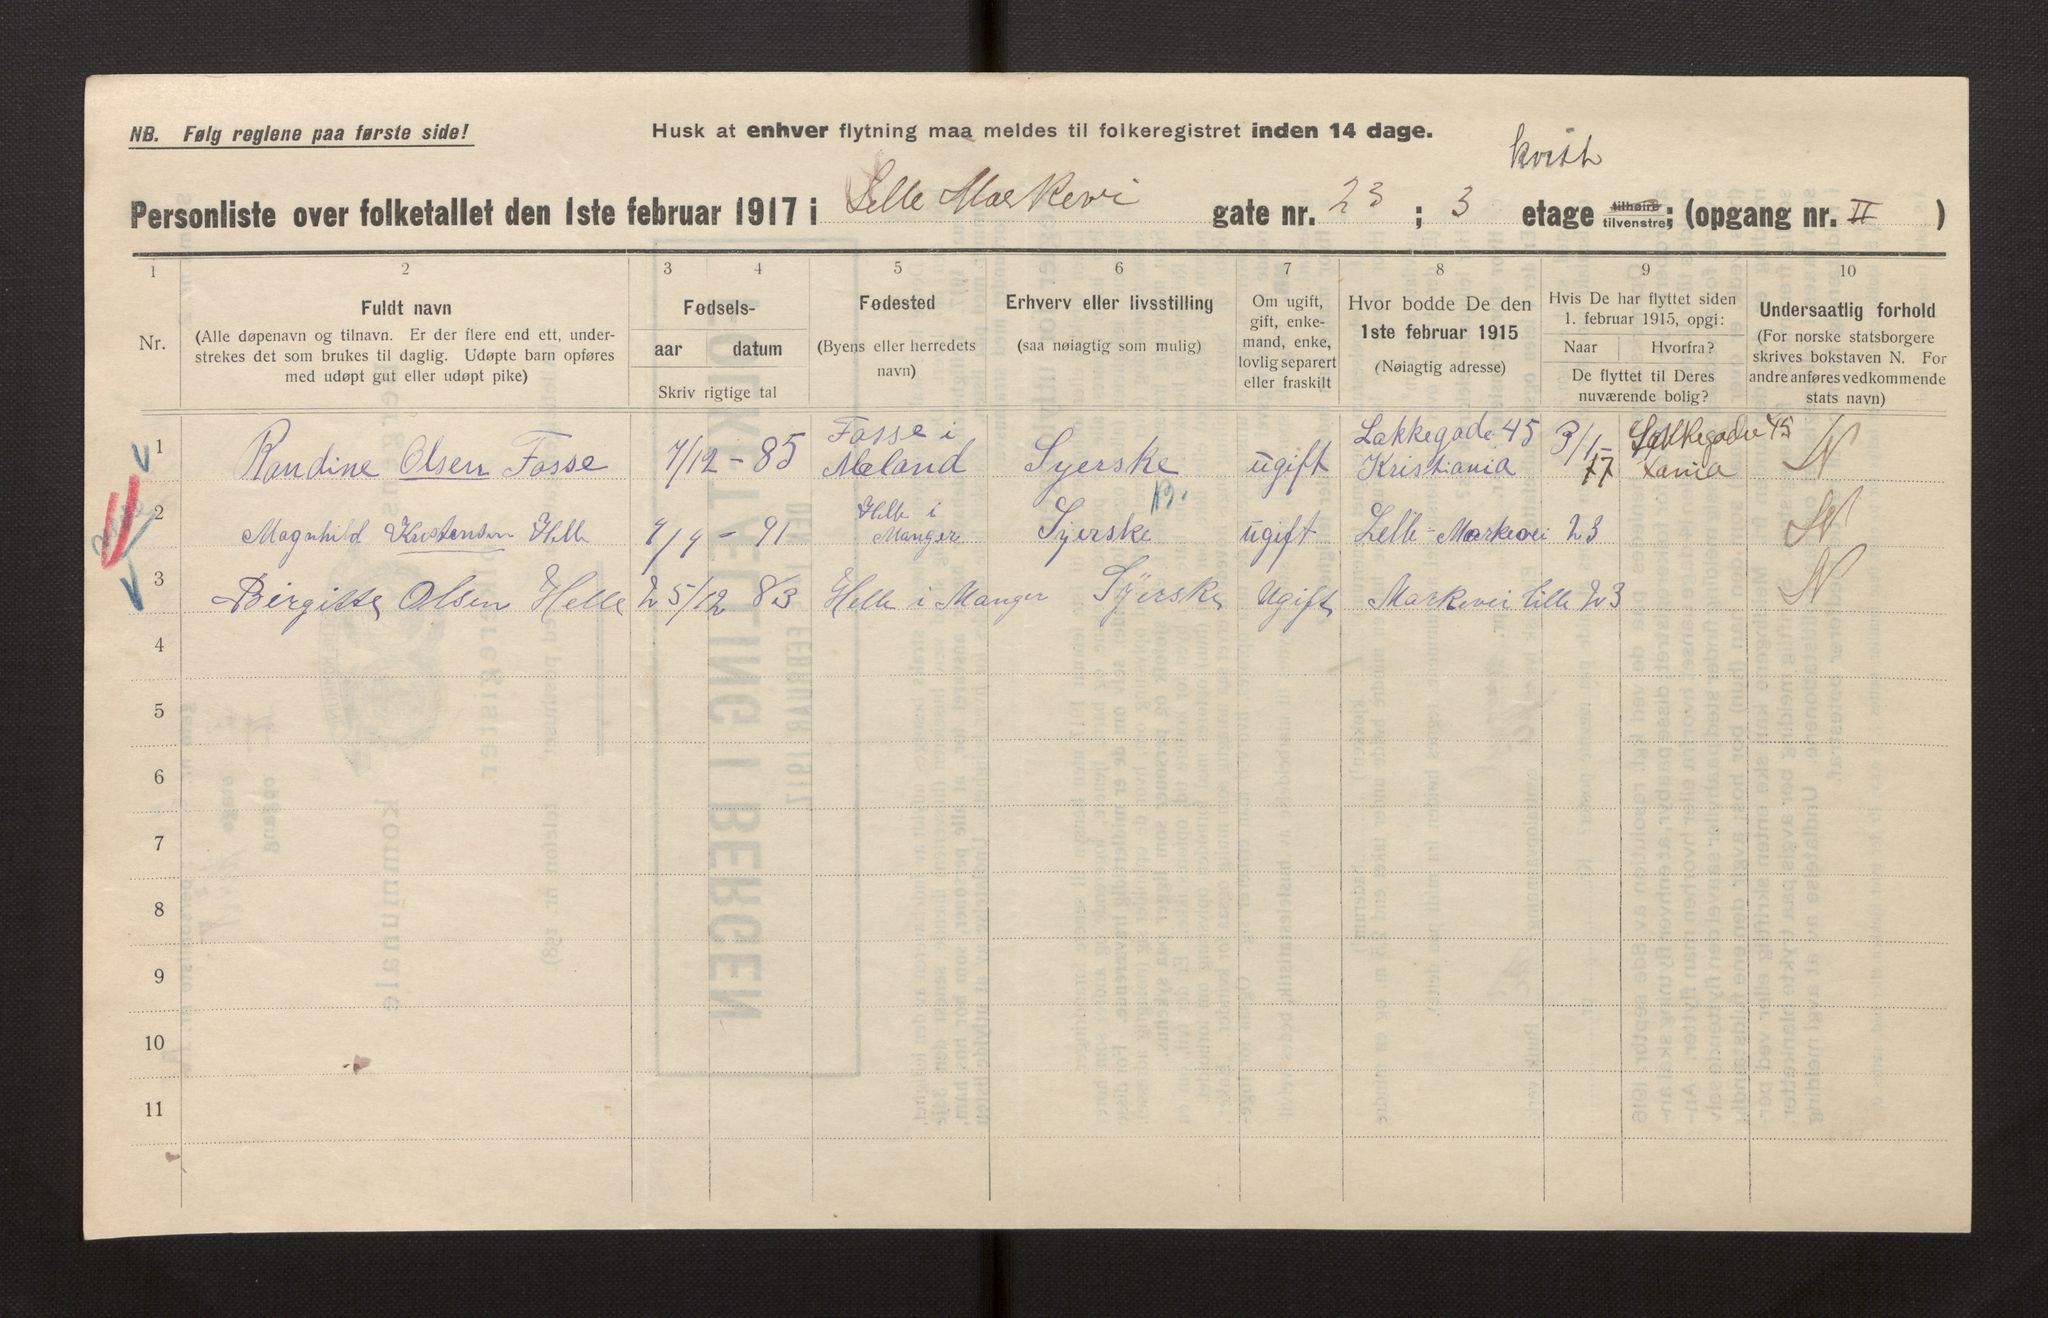 NB. Følg reglene paa første side!
Husk at enhver flytning maa meldes til folkeregistret inden 14 dage.
kvist
Personliste over folketallet den 1ste februar 1917 i Lelle Markevei gate nr. 23 ; 3 etage tilhøire tilvenstre; (opgang nr. II )
1 2 3 4 5 6 7 8 9 10
Nr.
Fuldt navn
(Alle døpenavn og tilnavn. Er der flere end ett, under-
strekes det som brukes til daglig. Udøpte barn opføres
med udøpt gut eller udøpt pike)
Fødsels-
aar datum
Skriv rigtige tal
Fødested
(Byens eller herredets
navn)
Erhverv eller livsstilling
(saa nøiagtig som mulig)
Om ugift,
gift, enke-
mand, enke,
lovlig separert
eller fraskilt
Hvor bodde De den
1ste februar 1915
(Nøiagtig adresse)
Hvis De har flyttet siden
1. februar 1915, opgi:
Naar Hvorfra?
De flyttet til Deres
nuværende bolig?
Undersaatlig forhold
(For norske statsborgere
skrives bokstaven N. For
andre anføres vedkommende
stats navn)
1 Randine Olsen Fosse 7/12 - 85 Fosse i Mæland Syerske ugift Lakkegade 45 Kristiania 3/1 - 17 Lakkegade 45 Xania N
2 Magnhild Kristensen Helle 9/9 - 91 Helle i Manger Syerske ugift Lelle Markevei 23 N
3 Birgitte Olsen Helle 25/12 83 Helle i Manger Syerske Ugift Markevei Lille 23 N
4
5
6
7
8
9
10
11